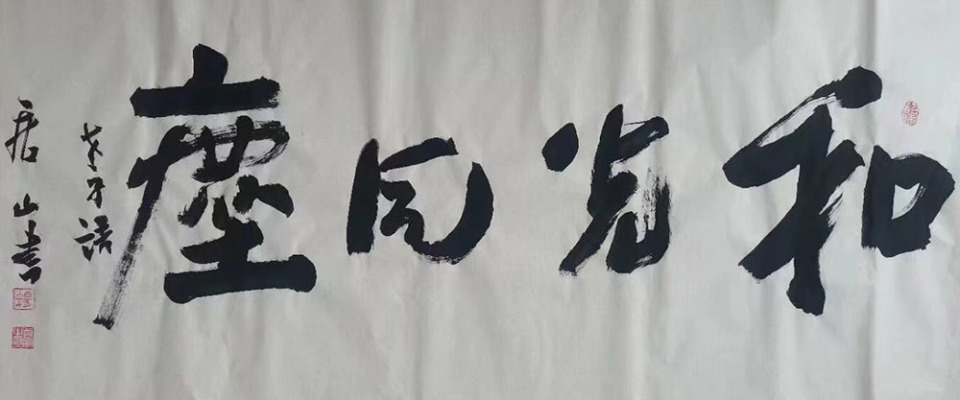 和光同塵
老子语
居山書